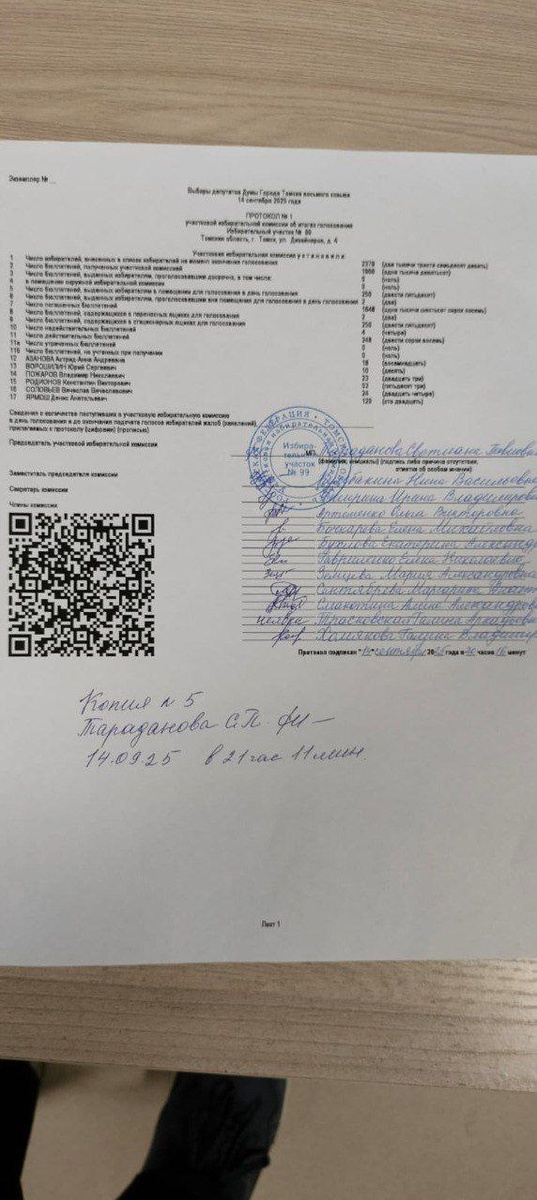 Экземпляр № __
Выборы депутатов Думы Города Томска восьмого созыва
14 сентября 2025 года
ПРОТОКОЛ № 1
участковой избирательной комиссии об итогах голосования
Избирательный участок № 99
Томская область, г. Томск, ул. Дизайнеров, д. 4
Участковая избирательная комиссия установила:
1 Число избирателей, внесенных в список избирателей на момент окончания голосования 2379 (две тысячи триста семьдесят девять)
2 Число бюллетеней, полученных участковой комиссией 1900 (одна тысяча девятьсот)
3 Число бюллетеней, выданных избирателям, проголосовавшим досрочно, в том числе: 0 (ноль)
4 в помещении окружной избирательной комиссии 0 (ноль)
5 Число бюллетеней, выданных избирателям в помещении для голосования в день голосования 250 (двести пятьдесят)
6 Число бюллетеней, выданных избирателям, проголосовавшим вне помещения для голосования в день голосования 2 (два)
7 Число погашенных бюллетеней 1648 (одна тысяча шестьсот сорок восемь)
8 Число бюллетеней, содержащихся в переносных ящиках для голосования 2 (два)
9 Число бюллетеней, содержащихся в стационарных ящиках для голосования 250 (двести пятьдесят)
10 Число недействительных бюллетеней 4 (четыре)
11 Число действительных бюллетеней 248 (двести сорок восемь)
11а Число утраченных бюллетеней 0 (ноль)
11б Число бюллетеней, не учтенных при получении 0 (ноль)
12 АЗАНОВА Астрид-Анна Андреевна 18 (восемнадцать)
13 ВОРОШИЛИН Юрий Сергеевич 10 (десять)
14 ПОЖАРОВ Владимир Николаевич 23 (двадцать три)
15 РОДИОНОВ Константин Викторович 53 (пятьдесят три)
16 СОЛОВЬЕВ Вячеслав Вячеславович 24 (двадцать четыре)
17 ЯРМОШ Денис Анатольевич 120 (сто двадцать)
Сведения о количестве поступивших в участковую избирательную комиссию
в день голосования и до окончания подсчета голосов избирателей жалоб (заявлений)
прилагаемых к протоколу (цифрами) (прописью)
Председатель участковой избирательной комиссии Тараданова Светлана
МП (фамилия, инициалы) (подпись либо причина отсутствия,
отметка об особом мнении)
Избира-
тельный
участок
№ 99
Заместитель председателя комиссии Нина Васильевна
Секретарь комиссии Ирина Владимировна
Члены комиссии Артёменко Ольга Викторовна
Бочкарева Елена Михайловна
Буслова Екатерина
Гавриленко Елена Николаевна
Мария Александровна
Сентябрева Маргарита
Алина Александровна
Тарасковская Галина Аркадьевна
Хомякова Галина
Протокол подписан "14" сентября 2025 года в 20 часов 16 минут
Копия n 5
Тараданова С.П.
14.09.25 в 21 час 11 мин.
Лист 1